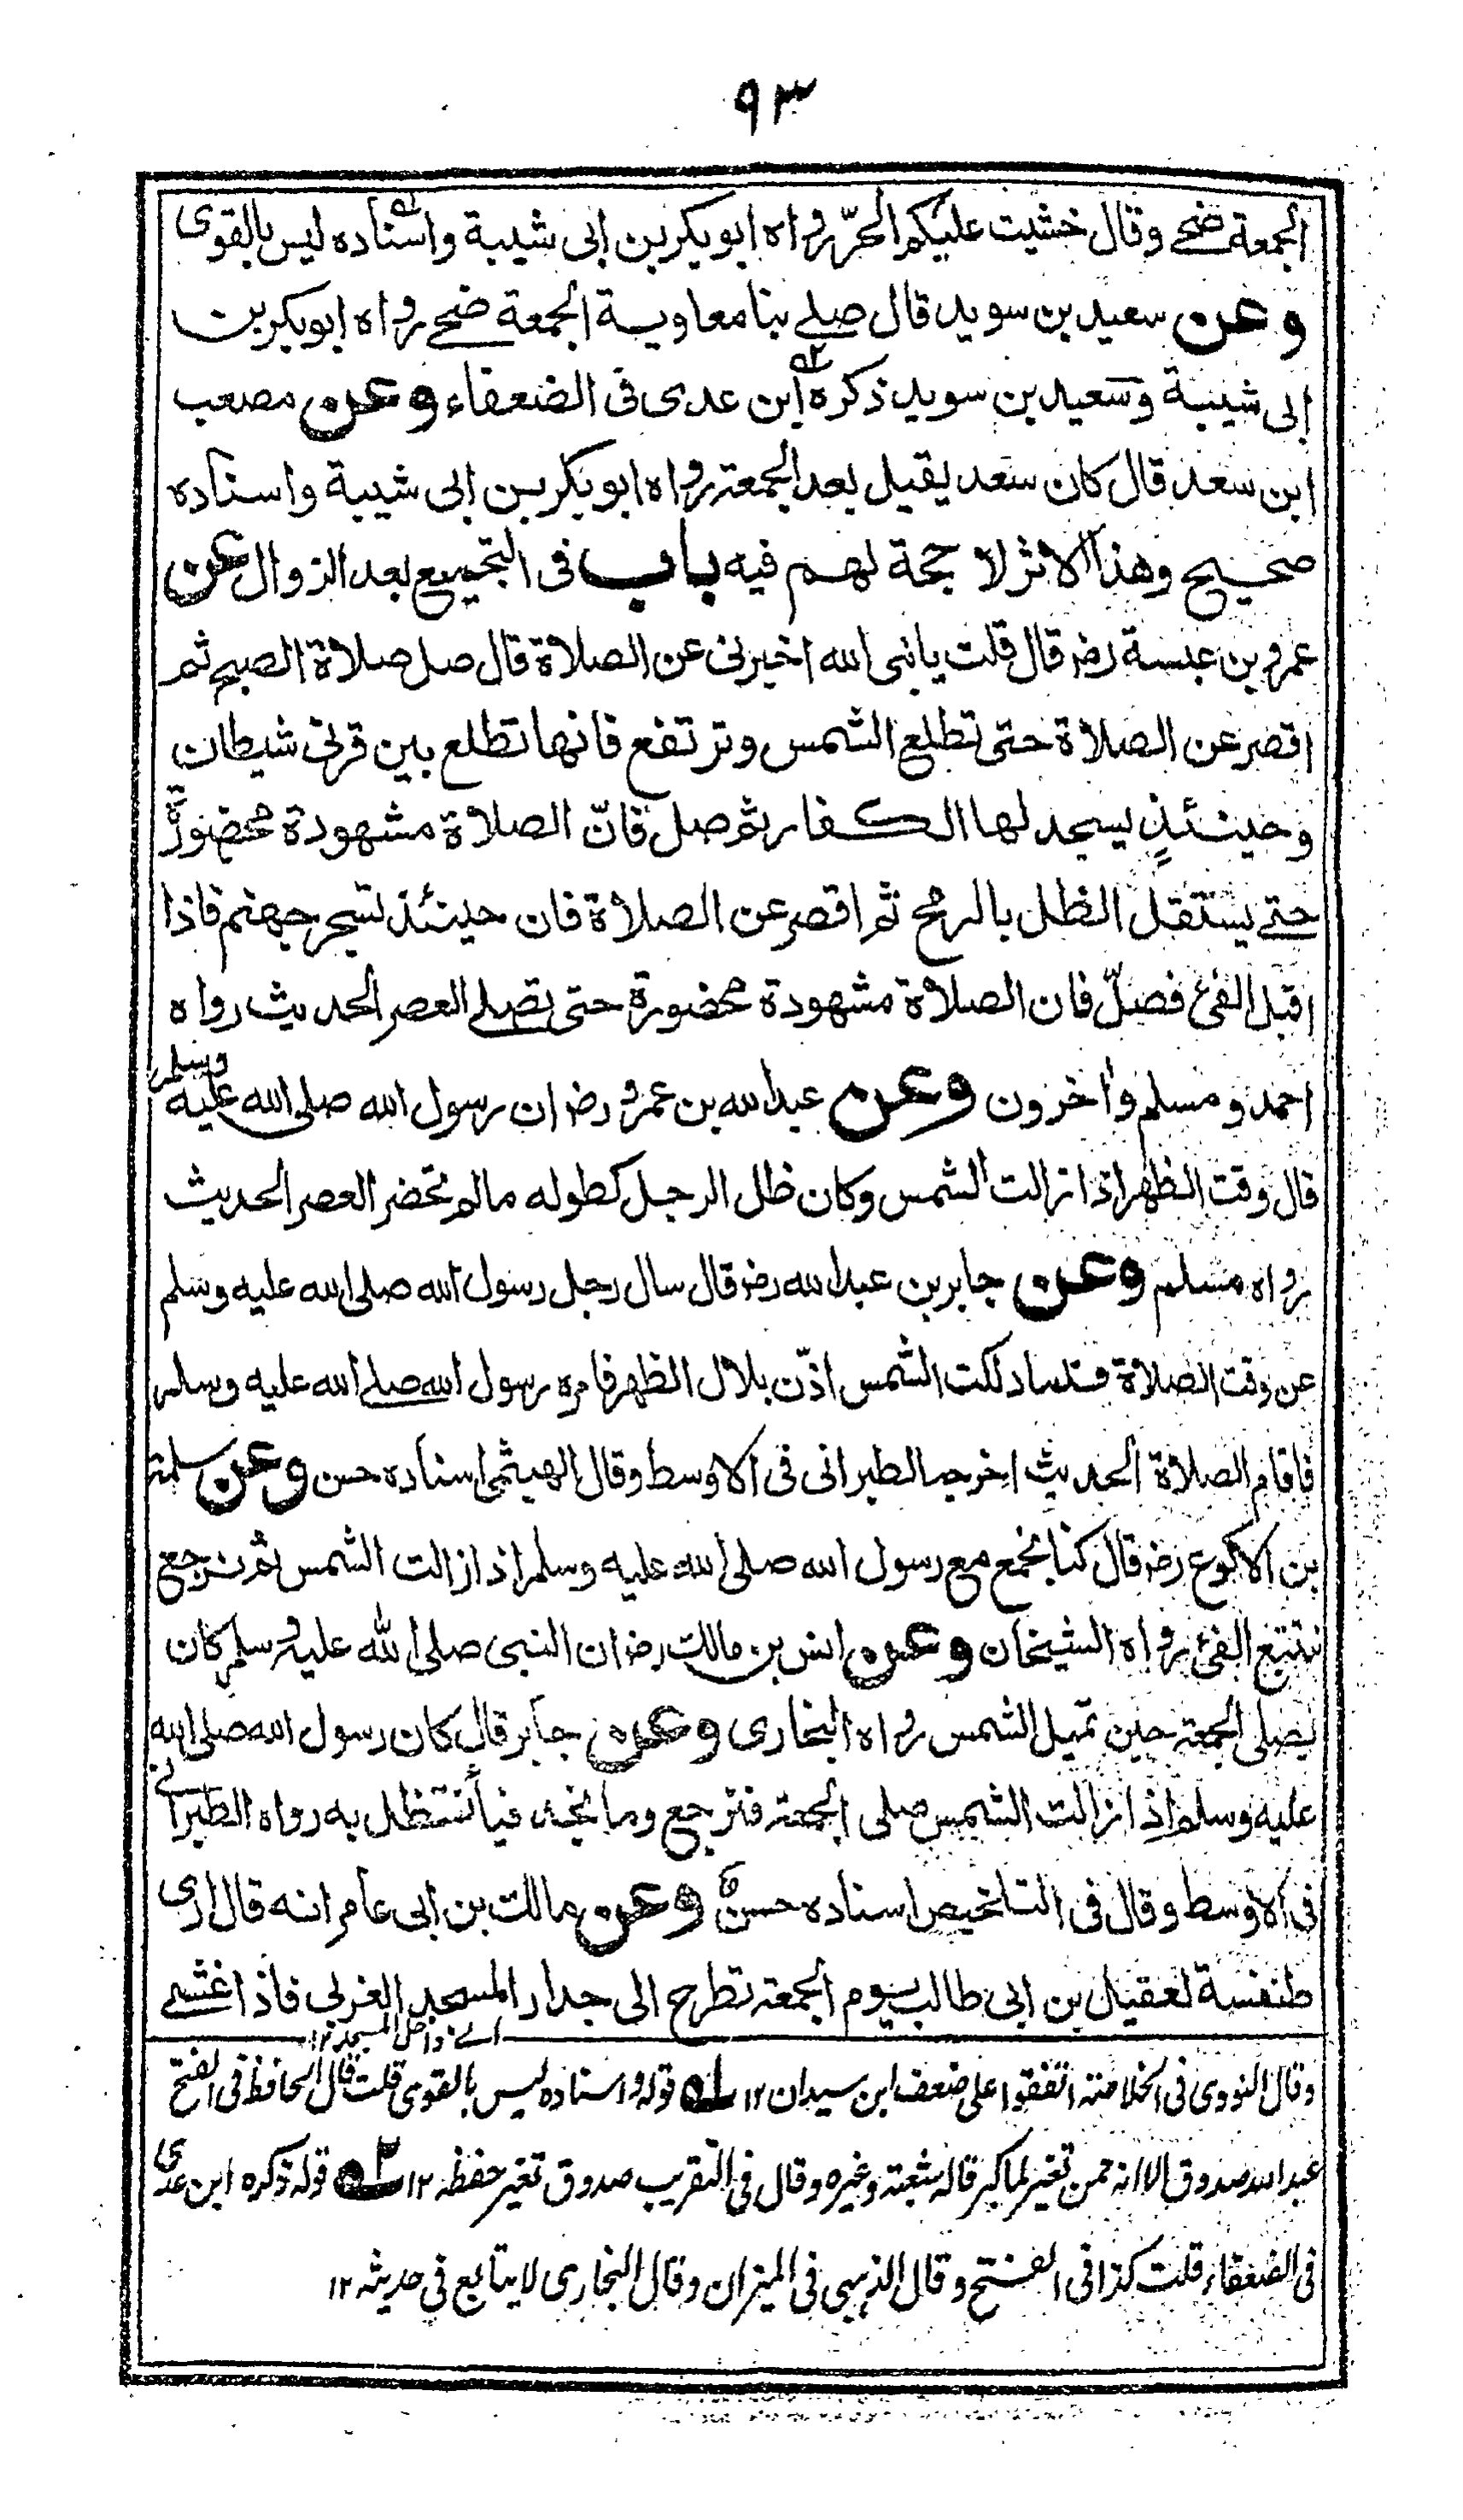 ٩٣
الجمعة ضحى وقال خشيت عليكم الحرّ رواه ابو بكر بن ابى شيبة واسناده ليس بالقوى
وعن سعيد بن سويد قال صلے بنا معاوية الجمعة ضحے رواه ابو بكر بن
ابى شيبة وسعيد بن سويد ذكره ابن عدى فى الضعفاء وعن مصعب
ابن سعد قال كان سعد يقيل بعد الجمعة رواه ابو بكر بن ابى شيبة واسناده
صحيح وهذا الاثر لا حجة لهم فيه باب فى التجميع بعد الزوال عن
عمرو بن عبسة رضـ قال قلت يا نبى الله اخبرنى عن الصلاة قال صل صلاة الصبح ثم
اقصر عن الصلاة حتى تطلع الشمس وترتفع فانها تطلع بين قرنى شيطان
وحينئذٍ يسجد لها الكفار ثم صل فانّ الصلاة مشهودة محضورةٌ
حتے يستقل الظل بالرمح ثم اقصر عن الصلاة فان حينئذ تسجر جهنم فاذا
اقبل الفئ فصلّ فان الصلاة مشهودة محضورة حتى تصلے العصر الحديث رواه
احمد ومسلم واخرون وعن عبد الله بن عمرو رضـ ان رسول الله صلى الله عليه وسلم
قال وقت الظهر اذا زالت الشمس وكان ظل الرجل كطوله ما لم تحضر العصر الحديث
رواه مسلم وعن جابر بن عبد الله رضـ قال سال رجل رسول الله صلى الله عليه وسلم
عن وقت الصلاة فلما دلكت الشمس اذّن بلال الظهر فامره رسول الله صلے الله عليه وسلم
فاقام الصلاة الحديث اخرجه الطبرانى فى الاوسط وقال الهيثمى اسناده حسن وعن سلمة
بن الاكوع رضـ قال كنا نجمع مع رسول الله صلى الله عليه وسلم اذا زالت الشمس ثم نرجع
نتتبع الفئ رواه الشيخان وعن انس بن مالك رضـ ان النبى صلى الله عليه وسلم كان
يصلى الجمعة حين تميل الشمس رواه البخارى وعن جابر قال كان رسول الله صلى الله
عليه وسلم اذا زالت الشمس صلى الجمعة فنرجع وما نجد فيأ نستظل به رواه الطبرانى
فى الاوسط وقال فى التلخيص اسناده حسن وعن مالك بن ابى عامر انه قال ارى
طنفسة لعقيل بن ابى طالب يوم الجمعة تطرح الى جدار المسجد الغربى فاذا غشے
اے داخل المسجد ١٢
وقال النووى فى الخلاصة اتفقوا على ضعف ابن سيدان ١٢ ١ه قوله واسناده ليس بالقوى قلت قال الحافظ فى الفتح
عبد الله صدوق الا انه ممن تغير لما كبر قاله شعبة وغيره وقال فى التقريب صدوق تغير حفظه ١٢ ٢ه قوله ذكره ابن عدى
فى الضعفاء قلت كذا فى الفتح وقال الذهبى فى الميزان وقال البخارى لا يتابع فى حديثه ١٢